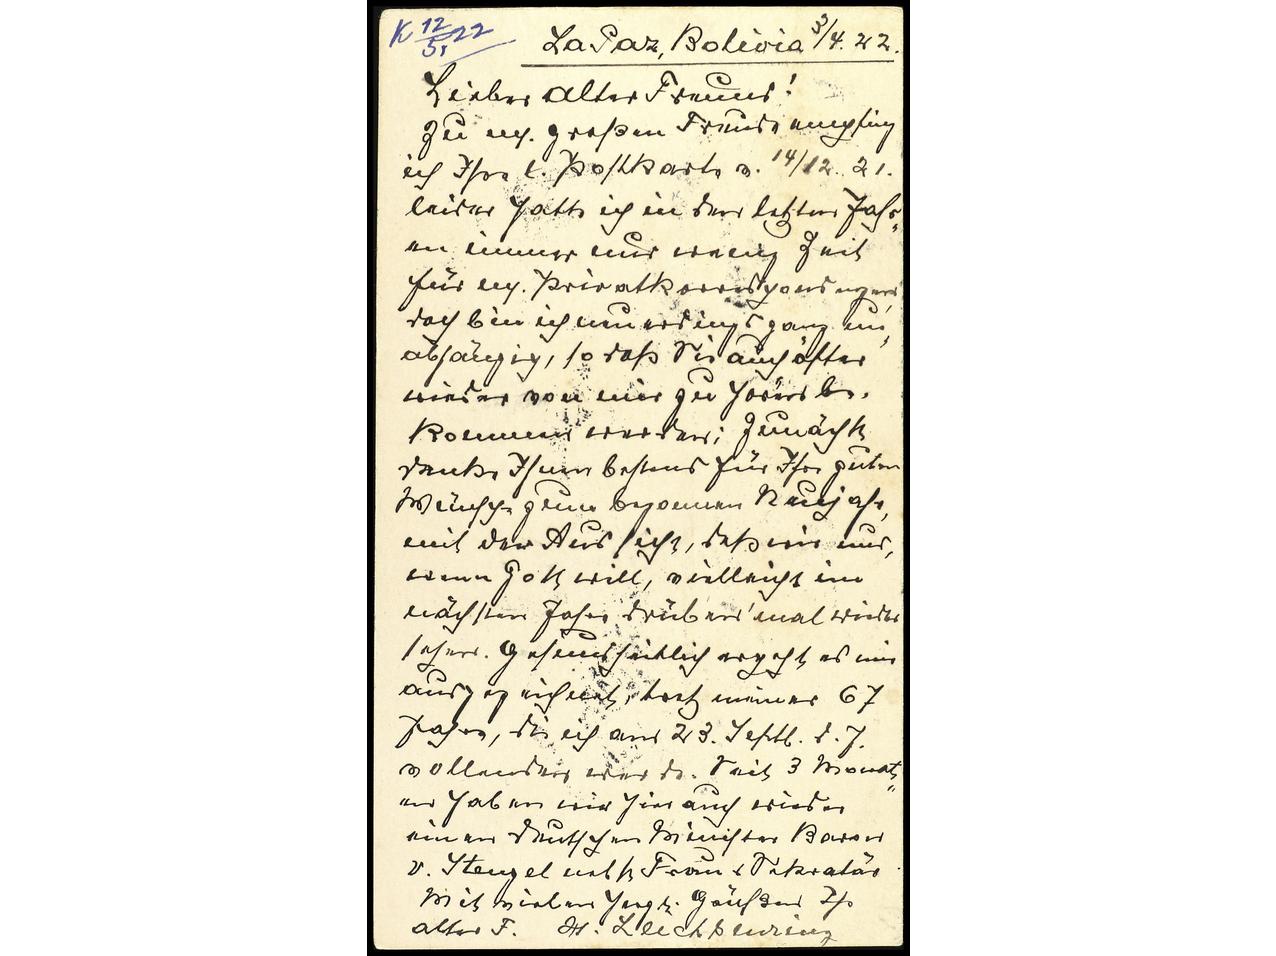 K 12/5. 22
La Paz, Bolivia 3/4. 22.
Lieber alter Freund!
Zu m. großen Freude empfing
ich Ihre l. Postkarte v. 14/12. 21.
leider hatte ich in den letzten Jahr„
en immer nur wenig Zeit
für m. Privatkorrespondenzen,
doch bin ich neuerdings ganz un„
abhängig, so daß Sie auch öfter
wieder von mir zu hören be„
kommen werden; Zunächst
danke Ihnen bestens für Ihre guten
Wünsche zum begonnen Neujahr,
mit der Aussicht, daß wir uns,
wenn Gott will, vielleicht im
nächsten Jahre drüben 'mal wieder
sehen. Gesundheitlich ergeht es mir
ausgezeichnet, trotz meiner 67
Jahre, die ich am 23. Septb. d. J.
vollenden werde. Seit 3 Monat„
en haben wir hier auch wieder
einen deutschen Minister Baron
v. Stengel nebst Frau & Sekretär
Mit vielen herzl. Grüßen Ihr
alter F.